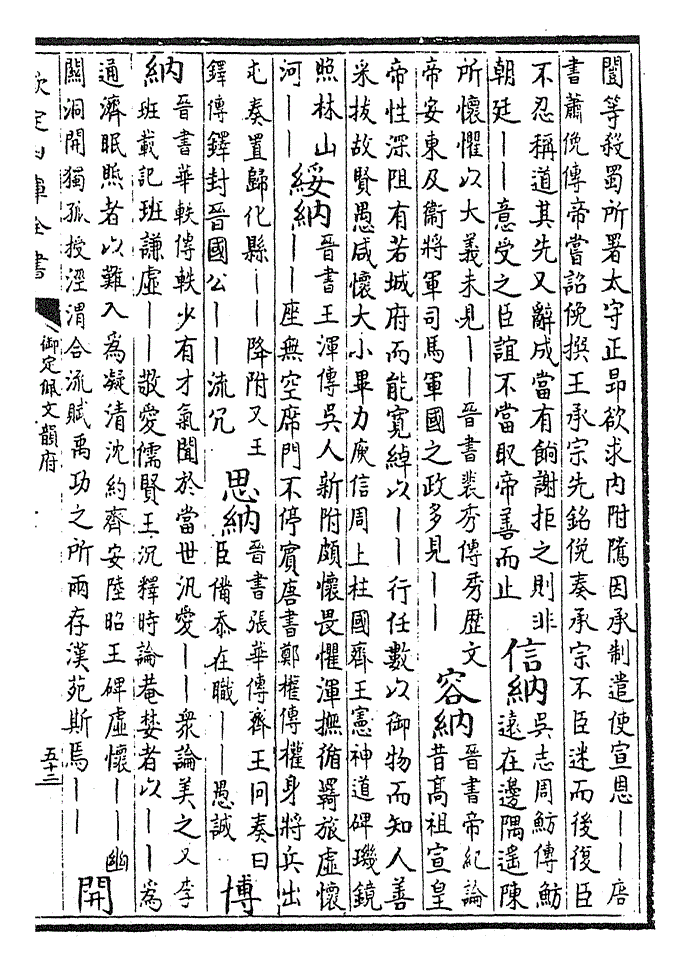 闓等殺蜀所署太守正昂欲求内附騭因承制遣使宣恩丨丨唐
書蕭俛傳帝嘗詔俛撰王承宗先銘俛奏承宗不臣迷而後復臣
不忍稱道其先又辭成當有餉謝拒之則非
朝廷丨丨意受之臣誼不當取帝善而止
信納
吳志周魴傳魴
遠在邊隅遙陳
所懷懼以大義未見丨丨晉書裴秀傳秀歷文
帝安東及衞將軍司馬軍國之政多見丨丨
容納
晉書帝紀論
昔髙祖宣皇
帝性深阻有若城府而能寛綽以丨丨行任數以御物而知人善
采拔故賢愚咸懷大小畢力庾信周上柱國齊王憲神道碑璣鏡
照林山
河丨丨
綏納
晉書王渾傳吳人新附頗懷畏懼渾撫循羇旅虛懷
丨丨座無空席門不停賓唐書鄭權傳權身將兵出
屯奏置歸化縣丨丨降附又王
鐸傳鐸封晉國公丨丨流冗
思納
晉書張華傳齊王冏奏曰
臣備忝在職丨丨愚誠
博
納
晉書華軼傳軼少有才氣聞於當世汎愛丨丨衆論美之又李
班載記班謙虛丨丨敬愛儒賢王沉釋時論菴婪者以丨丨爲
通濟眠煦者以難入爲凝清沈約齊安陸昭王碑虛懷丨丨幽
關洞開獨孤授涇渭合流賦禹功之所兩存漢苑斯焉丨丨
開
欽定四庫全書
御定佩文韻府
五十三